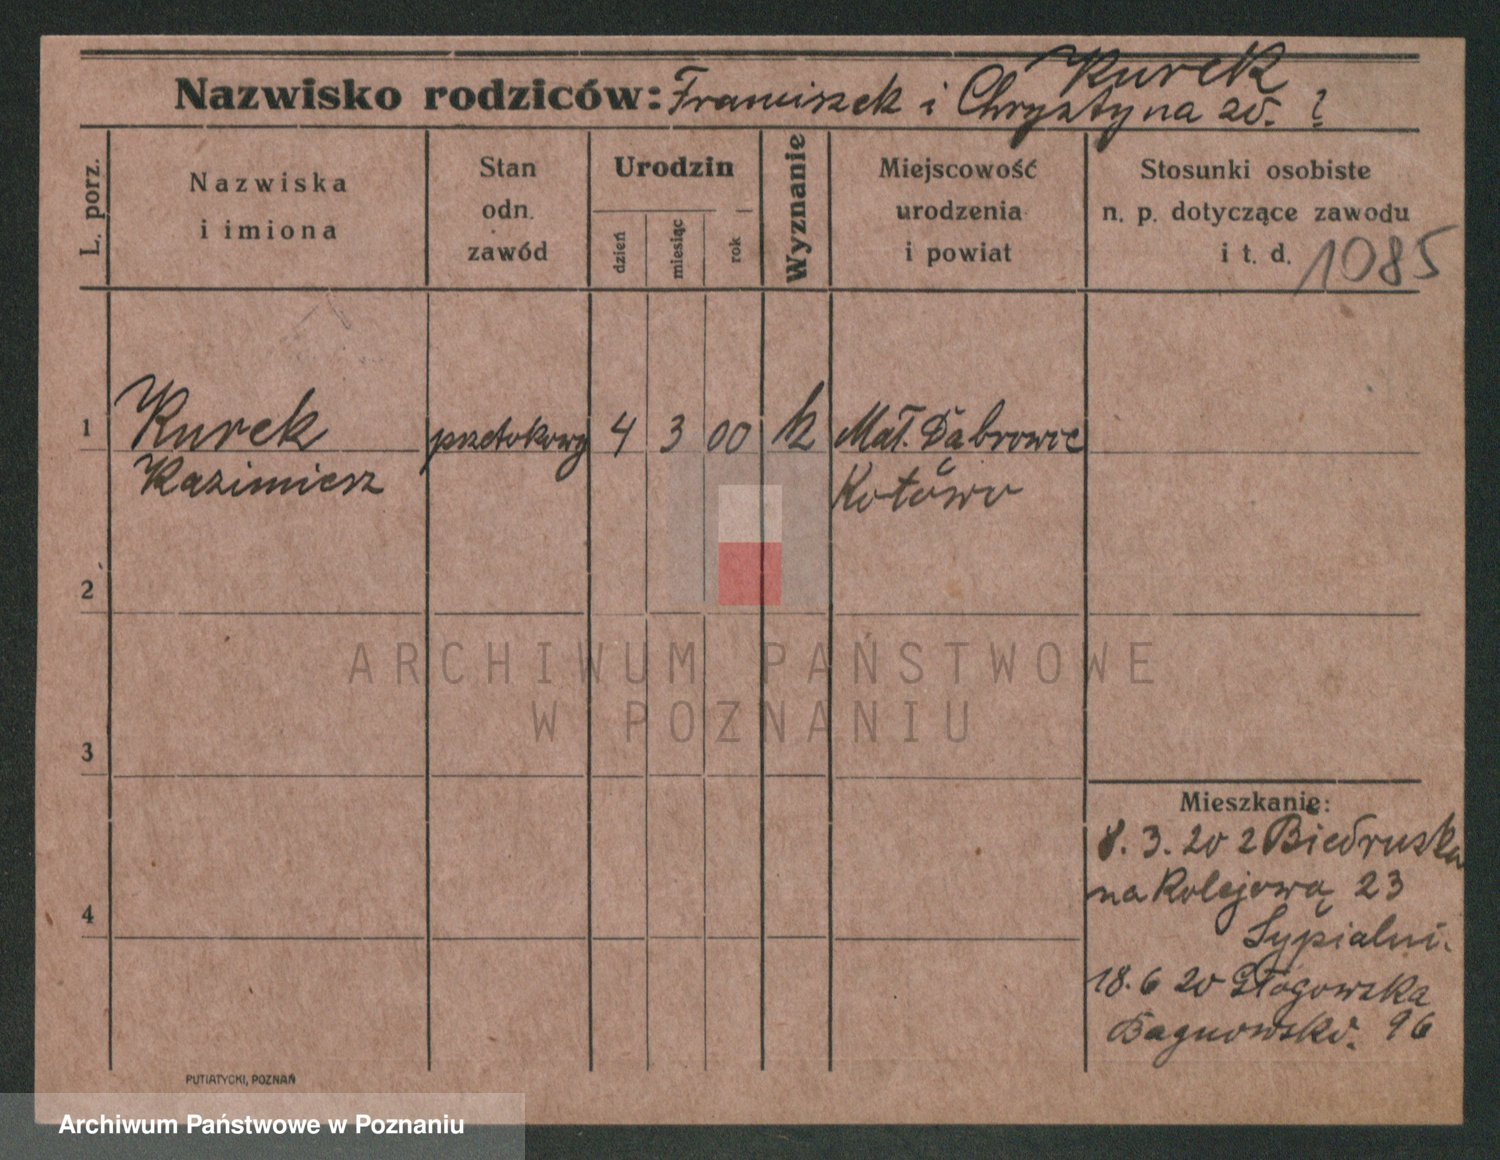 Kurek
Nazwisko rodziców: Franciszek i Chrystyna zd. ?
L. porz.
Nazwiska
i imiona
Stan
odn.
zawód
Urodzin
dzień
miesiąc
rok
Wyznanie
Miejscowość
urodzenia
i powiat
Stosunki osobiste
n. p. dotyczące zawodu
i t. d. 1085
1 Kurek przetokowy 4 3 00 k Mał. Dąbrowie
Kazimierz Kotowo
2
3
4
Mieszkanie:
8. 3. 20 z Biedruska
na Kolejową 23
18. 6 20 Głogowska
96
PUTIATYCKI, POZNAŃ
ARCHIWUM PAŃSTWOWE
W POZNANIU
Archiwum Państwowe w Poznaniu